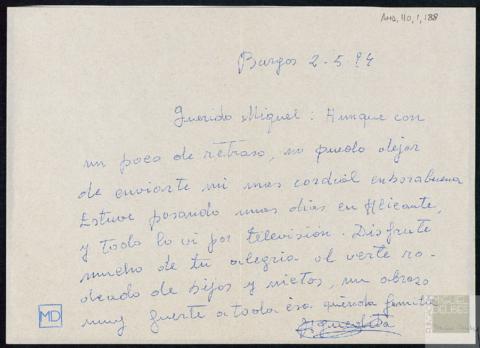 AMD, 110, 1, 188
Burgos 2-5-94
Querido Miguel: Aunque con
un poco de retraso, no puedo dejar
de enviarte mi mas cordial enhorabuena
Estuve pasando unos dias en Alicante,
y todo lo vi por televisión. Disfrute
mucho de tu alegria al verte ro-
deado de hijos y nietos, un abrazo
muy fuerte a toda esa querida familia
MD